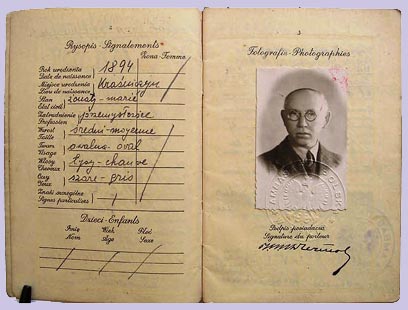 2
Rysopis-Signalements
Żona-Femme
Rok urodzenia 1894
Date de naissance
Miejsce urodzenia
Lieu de naissance
Stan żonaty-marié
État civil
Zatrudnienie przemysłowiec
Profession
Wzrost średni-moyenne
Taille
Twarz owalna-oval
Visage
Włosy łysy-chauve
Cheveux
Oczy szare-gris
Yeux
Znaki szczególne
Signes particuliers
Dzieci-Enfants
Imię Wiek Płeć
Nom Age Sexe
3
Fotografia-Photographies
Podpis posiadacza
Signature du porteur